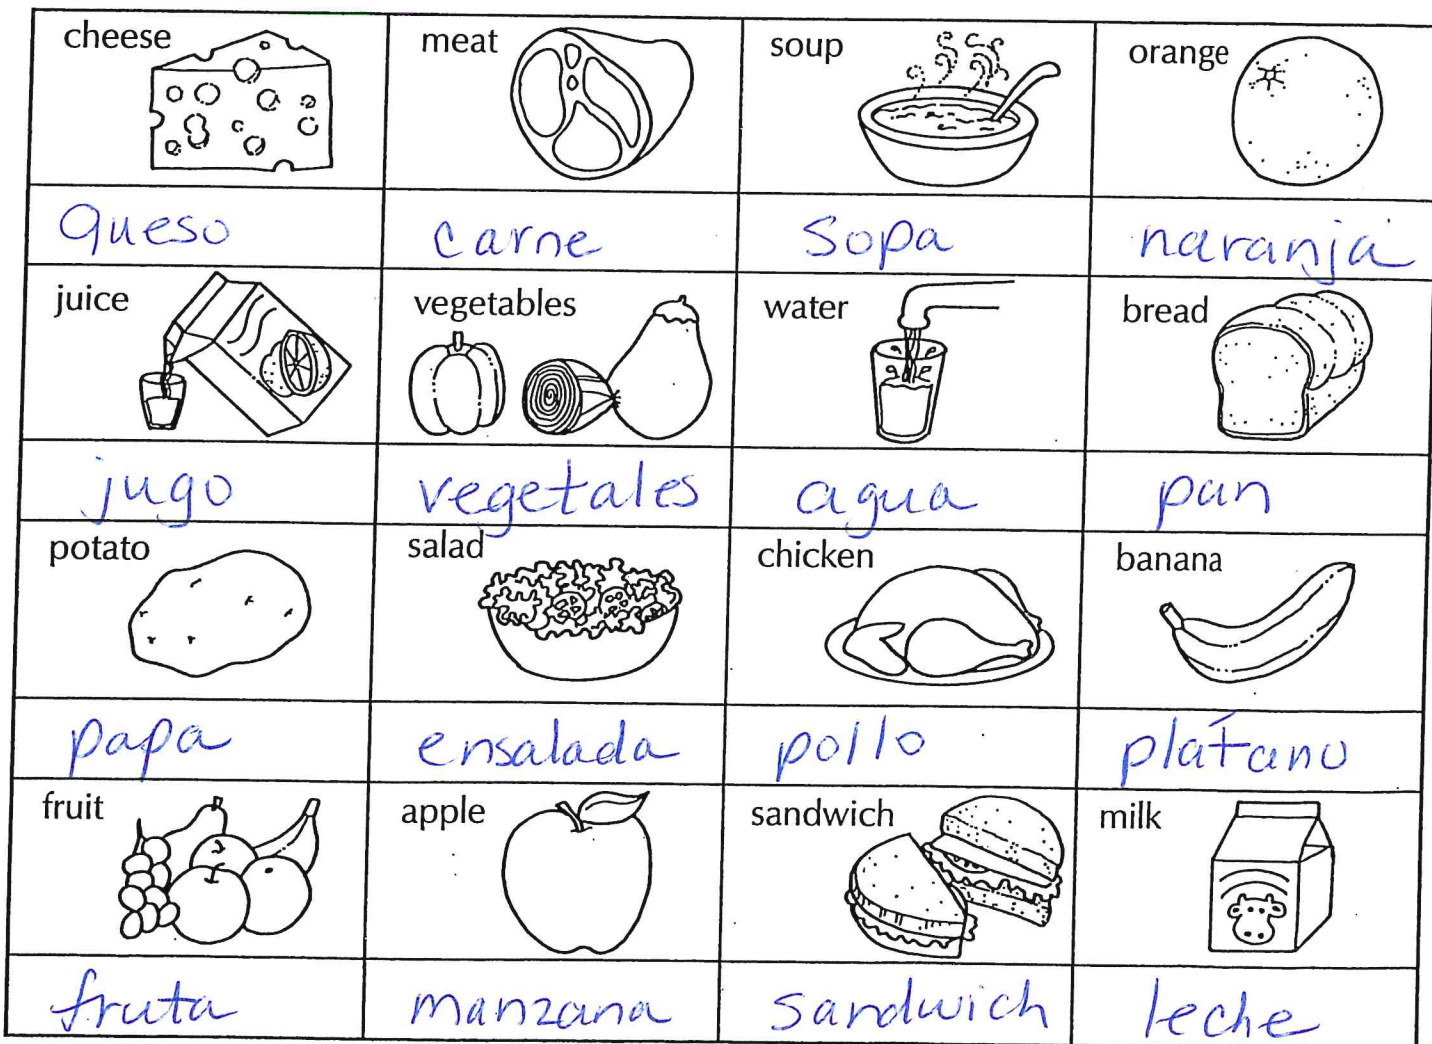 cheese meat soup orange
queso carne sopa naranja
juice vegetables water bread
jugo vegetales agua pan
potato salad chicken banana
papa ensalada pollo plátano
fruit apple sandwich milk
fruta manzana sandwich leche